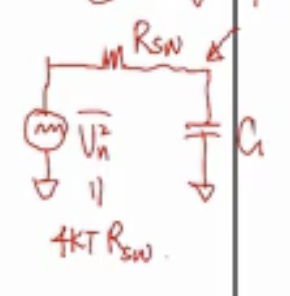 Rsw
Vn² C₁
||
4KT Rsw.